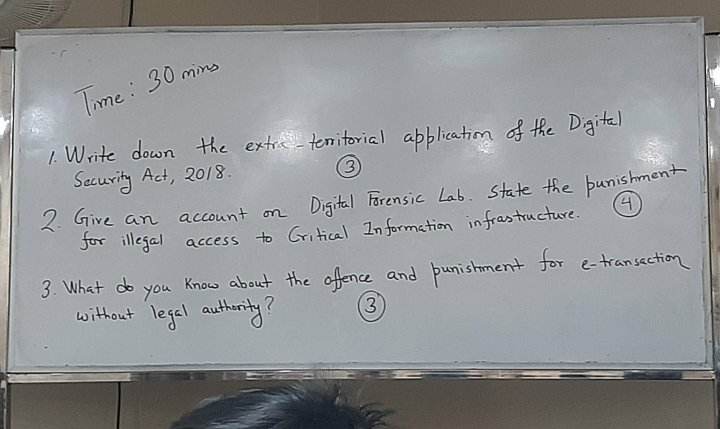 Time: 30 mins
1. Write down the extra-territorial application of the Digital
Security Act, 2018. (3)
2. Give an account on Digital Forensic Lab. State the punishment
for illegal access to Critical Information infrastructure. (4)
3. What do you know about the offence and punishment for e-transaction
without legal authority? (3)